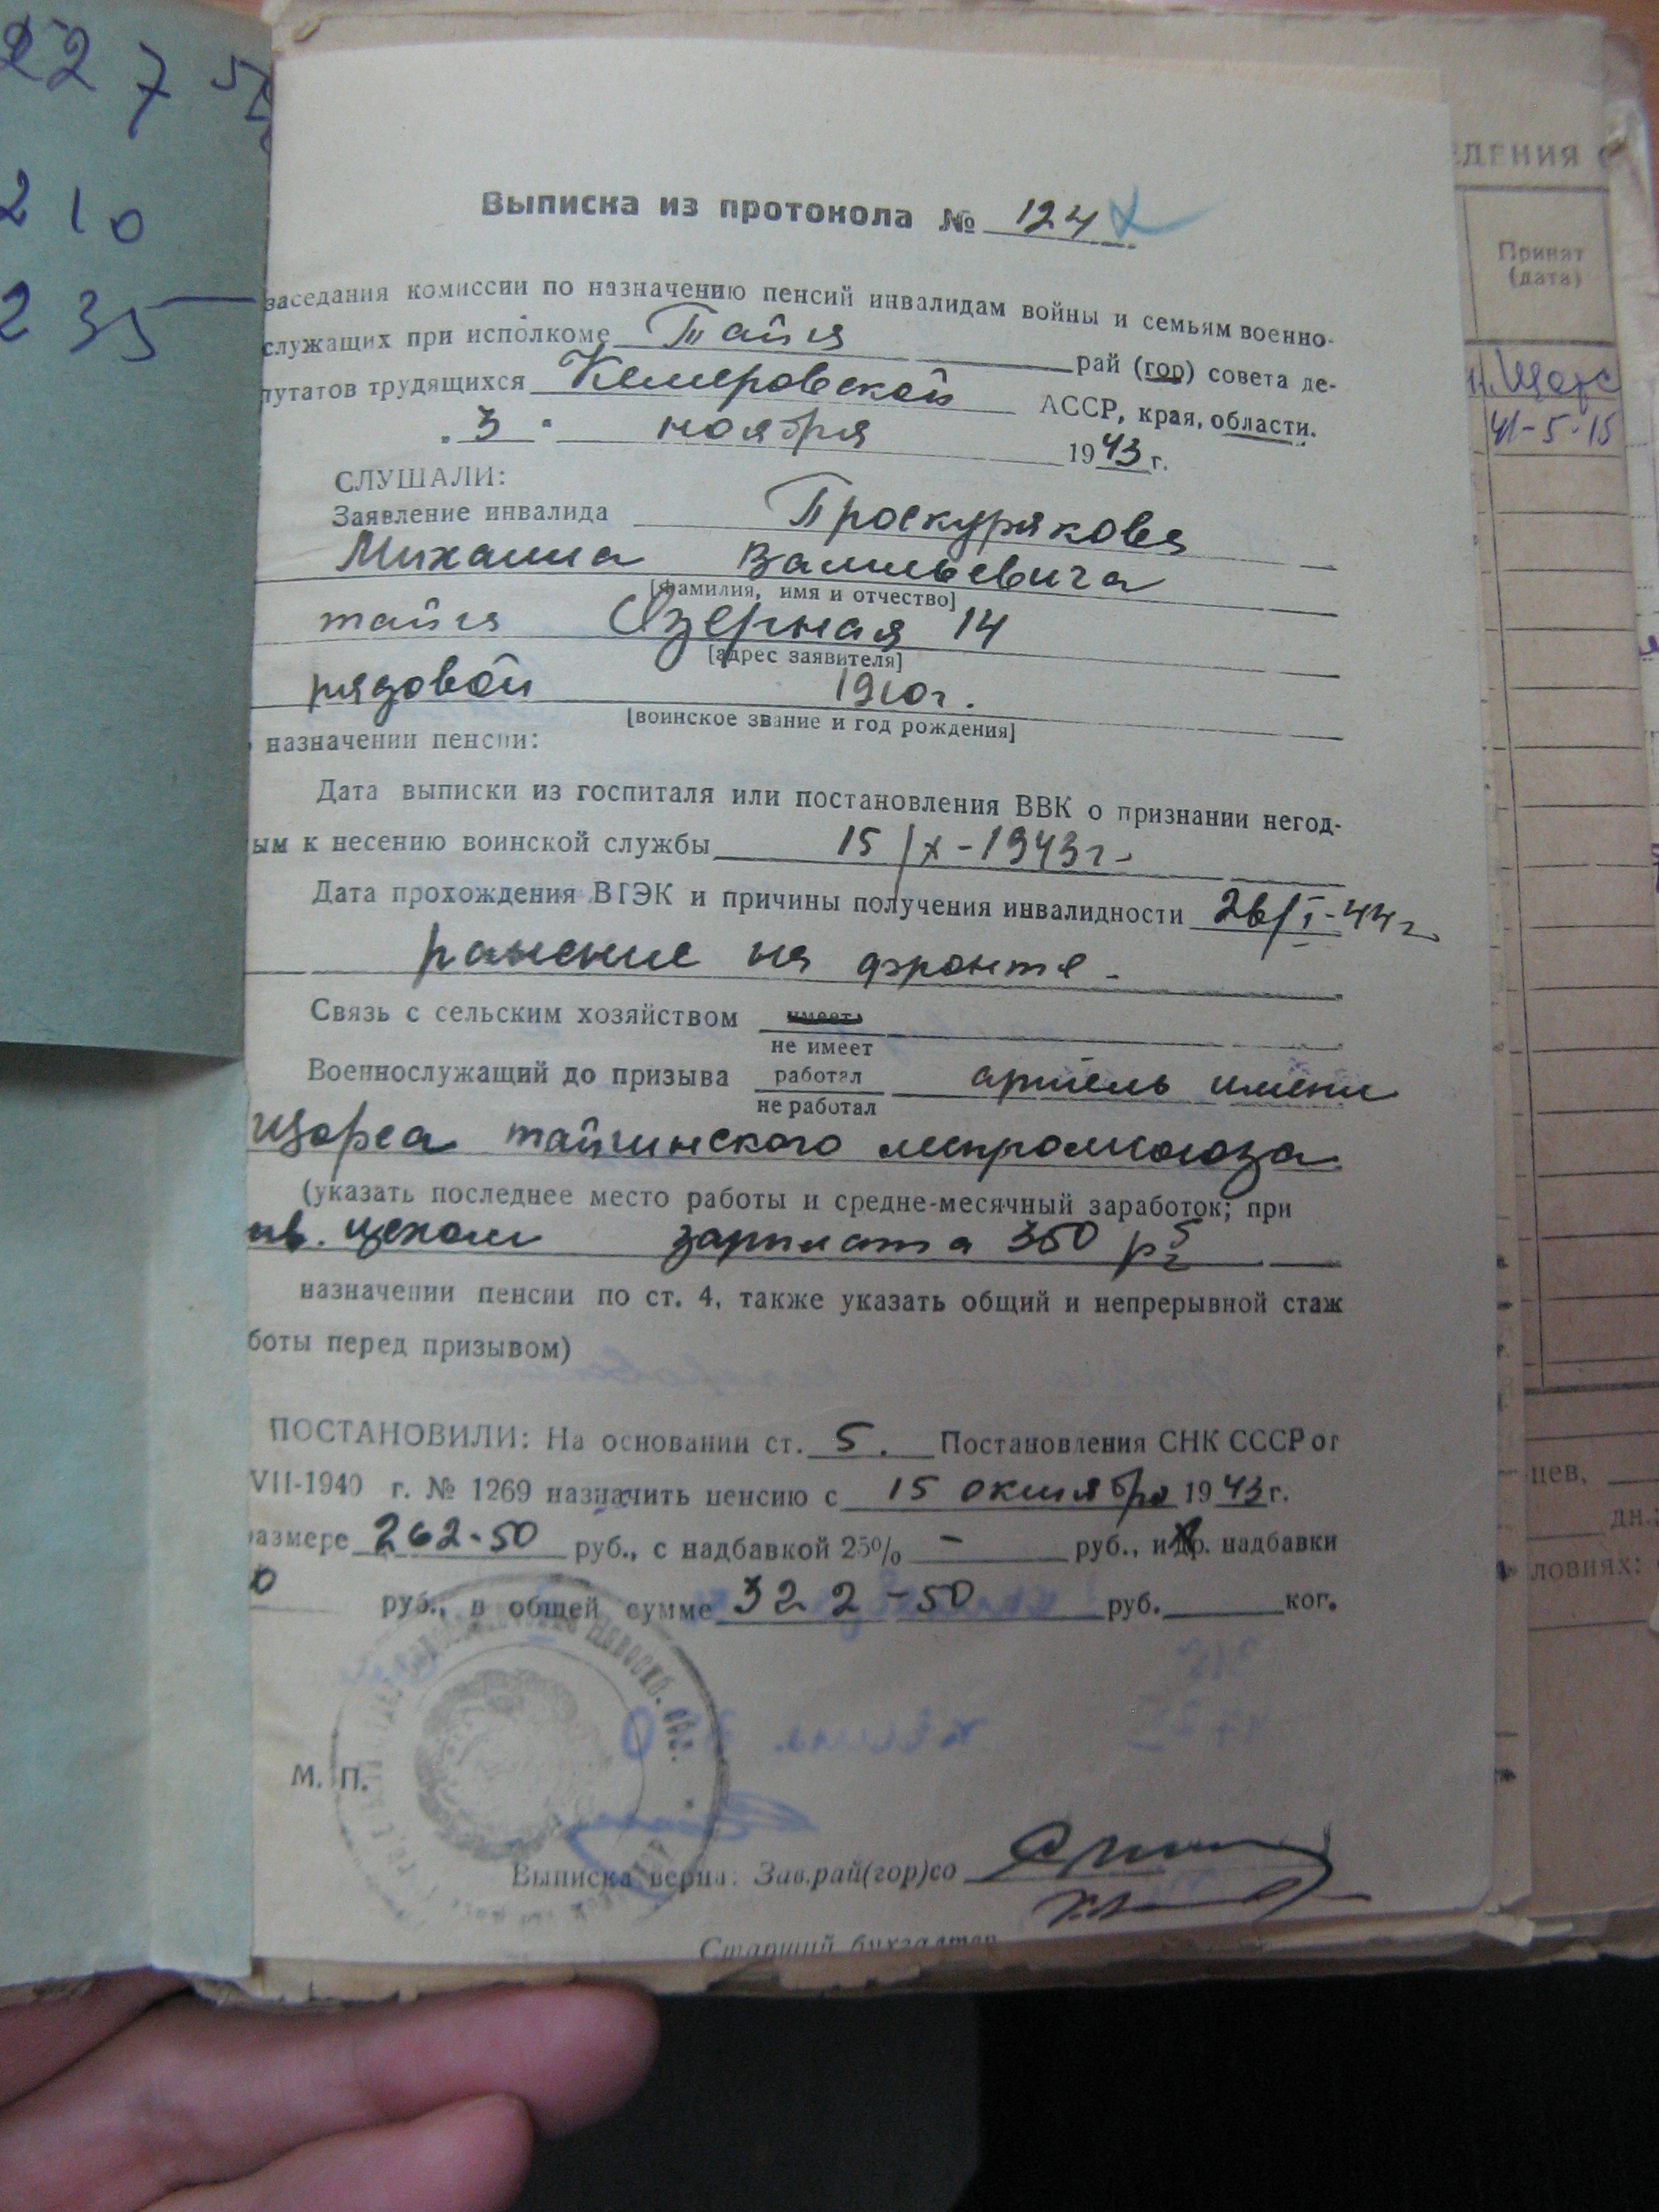 227
210
235
Выписка из протокола № 124
заседания комиссии по назначению пенсий инвалидам войны и семьям военно-
служащих при исполкоме Тайга рай (гор) совета де-
путатов трудящихся Кемеровской АССР, края, области.
„3" ноября 1943 г.
СЛУШАЛИ:
Заявление инвалида Проскурякова
Михаила Васильевича
[фамилия, имя и отчество]
тайга Озерная 14
[адрес заявителя]
рядовой 1910 г.
[воинское звание и год рождения]
назначении пенсии:
Дата выписки из госпиталя или постановления ВВК о признании негод-
ым к несению воинской службы 15/X-1943 г.
Дата прохождения ВТЭК и причины получения инвалидности 26/I-44 г
ранение на фронте.
Связь с сельским хозяйством имеет
не имеет
Военнослужащий до призыва работал артель имени
не работал
Щорса тайгинского леспромсоюза
(указать последнее место работы и средне-месячный заработок; при
цехом зарплата 350 р
назначении пенсии по ст. 4, также указать общий и непрерывной стаж
боты перед призывом)
ПОСТАНОВИЛИ: На основании ст. 5. Постановления СНК СССР от
VII-1940 г. № 1269 назначить пенсию с 15 октября 1943 г.
размере 262-50 руб., с надбавкой 25% — руб., и др. надбавки
0 руб., в общей сумме 322-50 руб. коп.
М. П.
Выписка верна: Зав.рай(гор)со
Старший бухгалтер
ДЕНИЯ
Принят
(дата)
Щорс
41-5-15
цев,
дн.
ловиях: